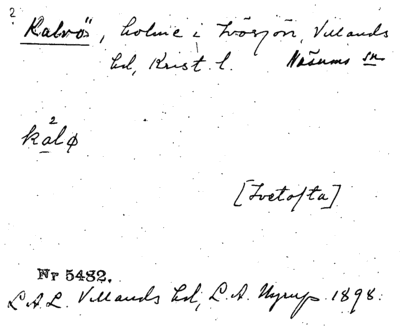 2
Kalvö, holme i Ivösjön, Villands
hd, Krist. l. Näsums sn
2
kalø
[Ivetofta]
Nr 5482.
L.A.L. Villands hd, L.A. Nyrup 1898.